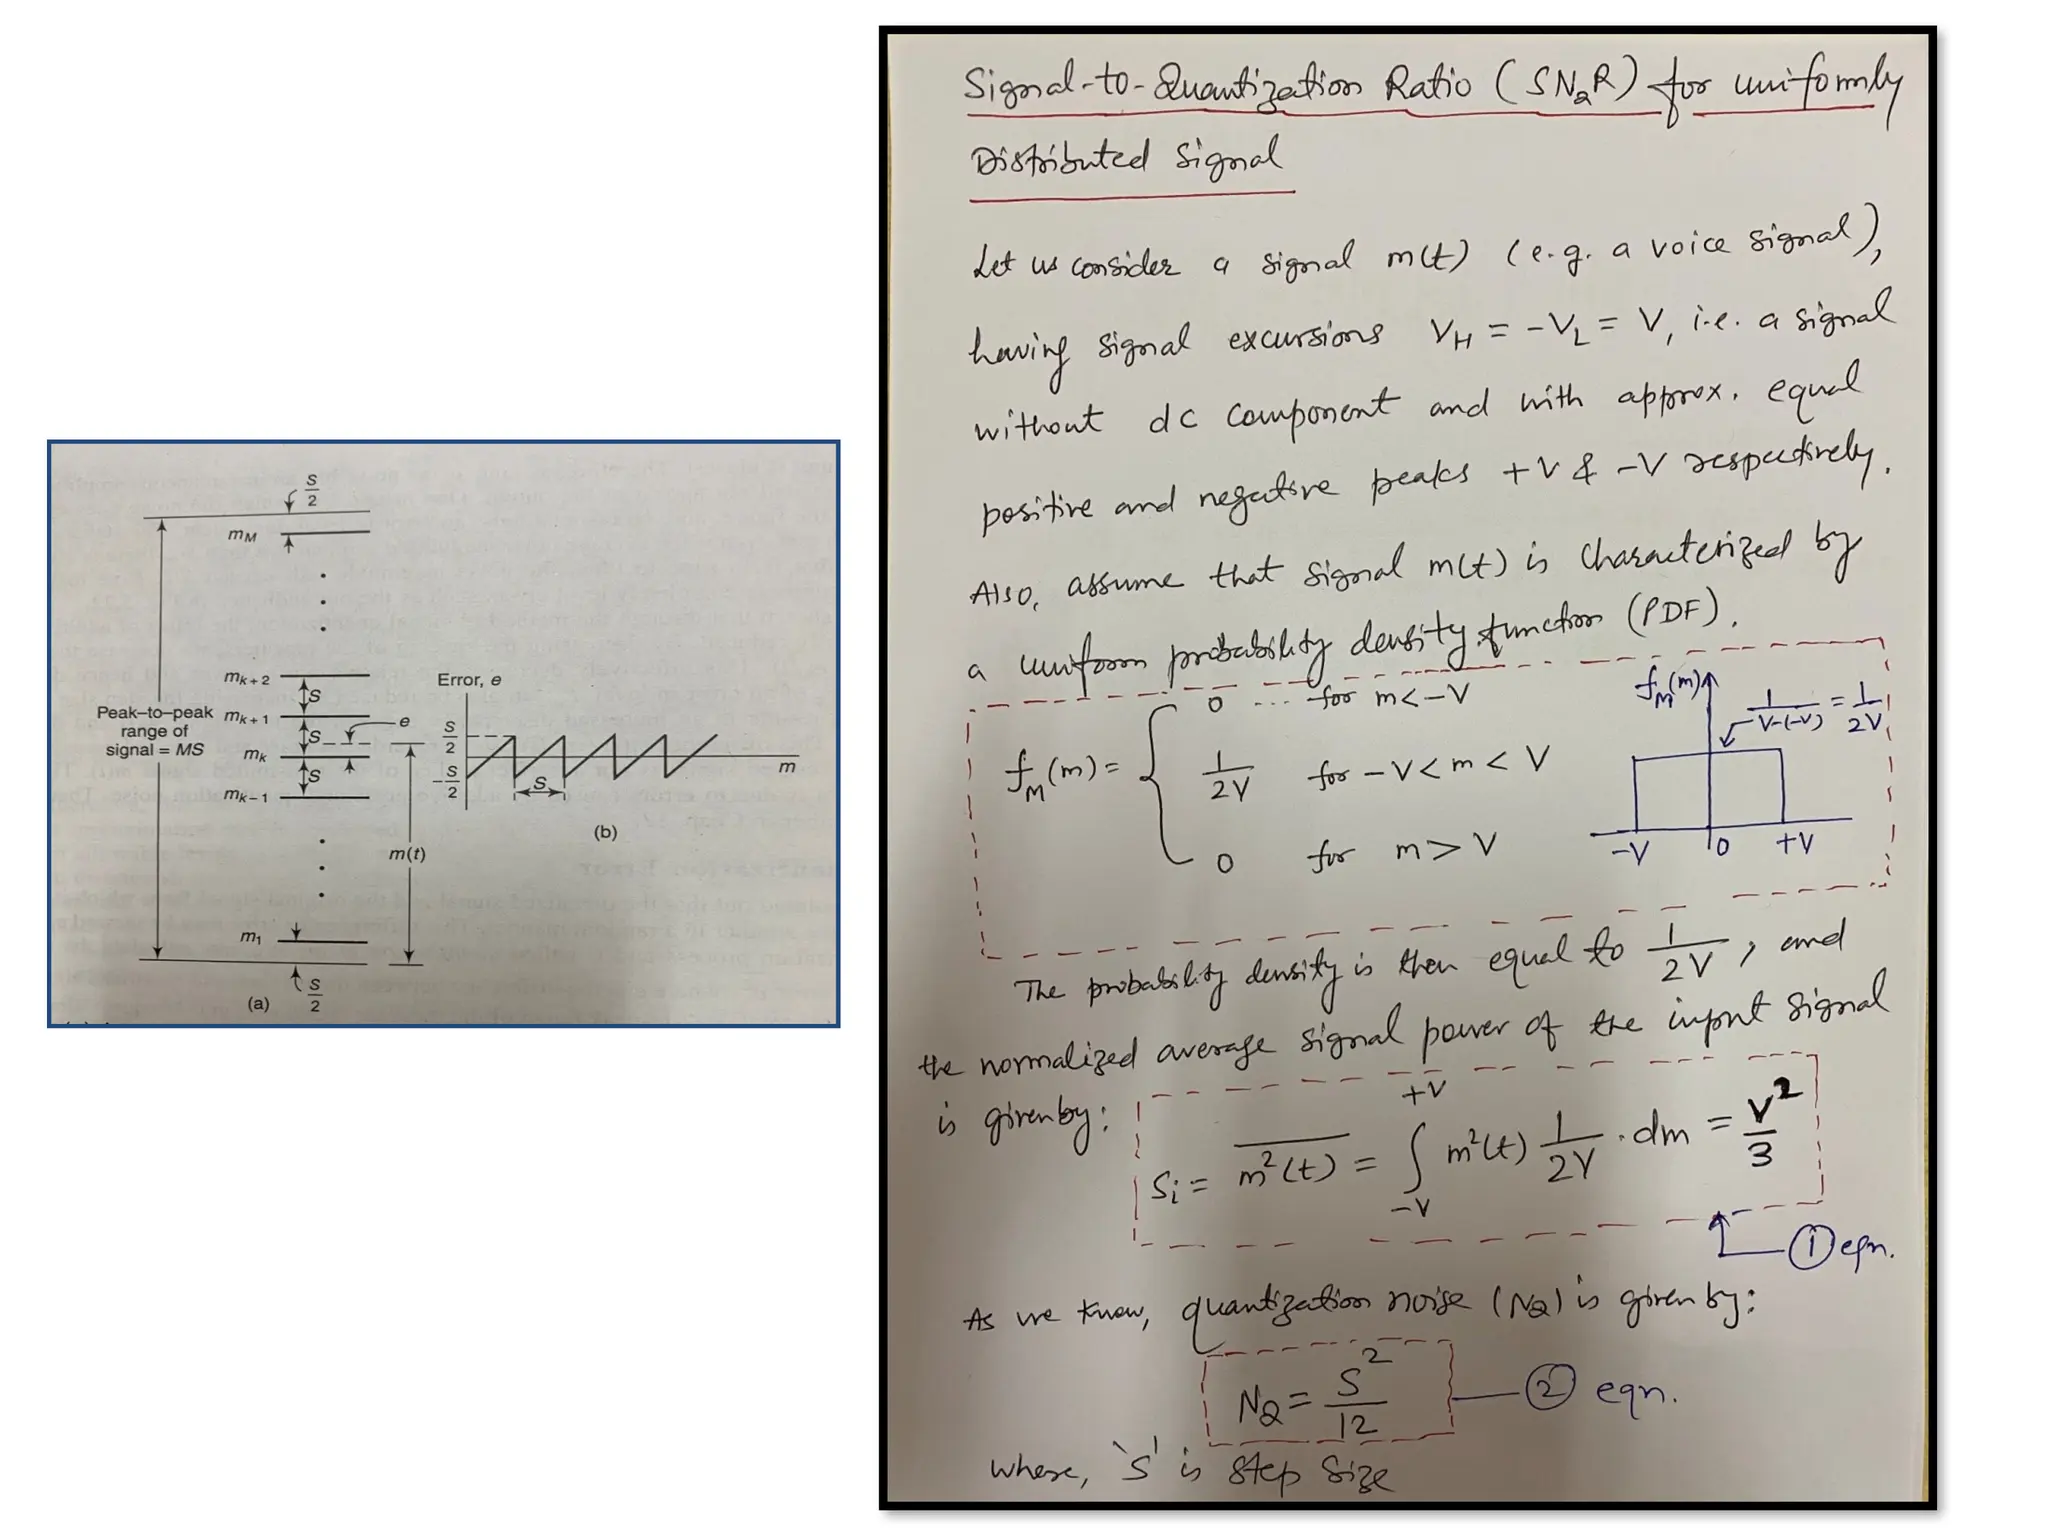 S/2
mM
mk+2
S
Peak–to–peak range of signal = MS
mk+1
S
e
mk
S
mk–1
m(t)
m1
S/2
(a)
Error, e
S/2
–S/2
S
m
(b)
Signal-to-Quantization Ratio (SNQR) for uniformly
Distributed Signal
Let us consider a signal m(t) (e.g. a voice signal),
having signal excursions VH = -VL = V, i.e. a signal
without dc component and with approx. equal
positive and negative peaks +V & -V respectively.
Also, assume that signal m(t) is characterized by
a uniform probability density function (PDF).
fM(m) = { 0 ... for m < -V
1/2V for -V < m < V
0 for m > V
fM(m)
1/V-(-V) = 1/2V
-V 0 +V
The probability density is then equal to 1/2V, and
the normalized average signal power of the input signal
is given by:
Si = m²(t) = ∫ +V -V m²(t) 1/2V · dm = V²/3
① eqn.
As we know, quantization noise (NQ) is given by:
NQ = S²/12
② eqn.
where, 'S' is step size